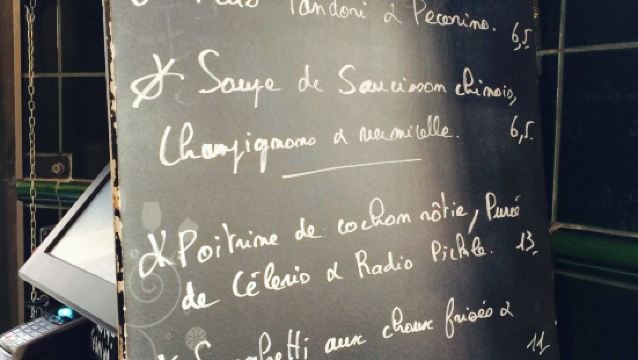 Tandori & Pecorino. 6,5.
* Soupe de Saucisson chinois,
Champignons & vermicelle. 6,5.
* Poitrine de cochon rôtie, Purée
de Célerio & Radio Pickle. 13.
* Spaghetti aux choux frisés &
11